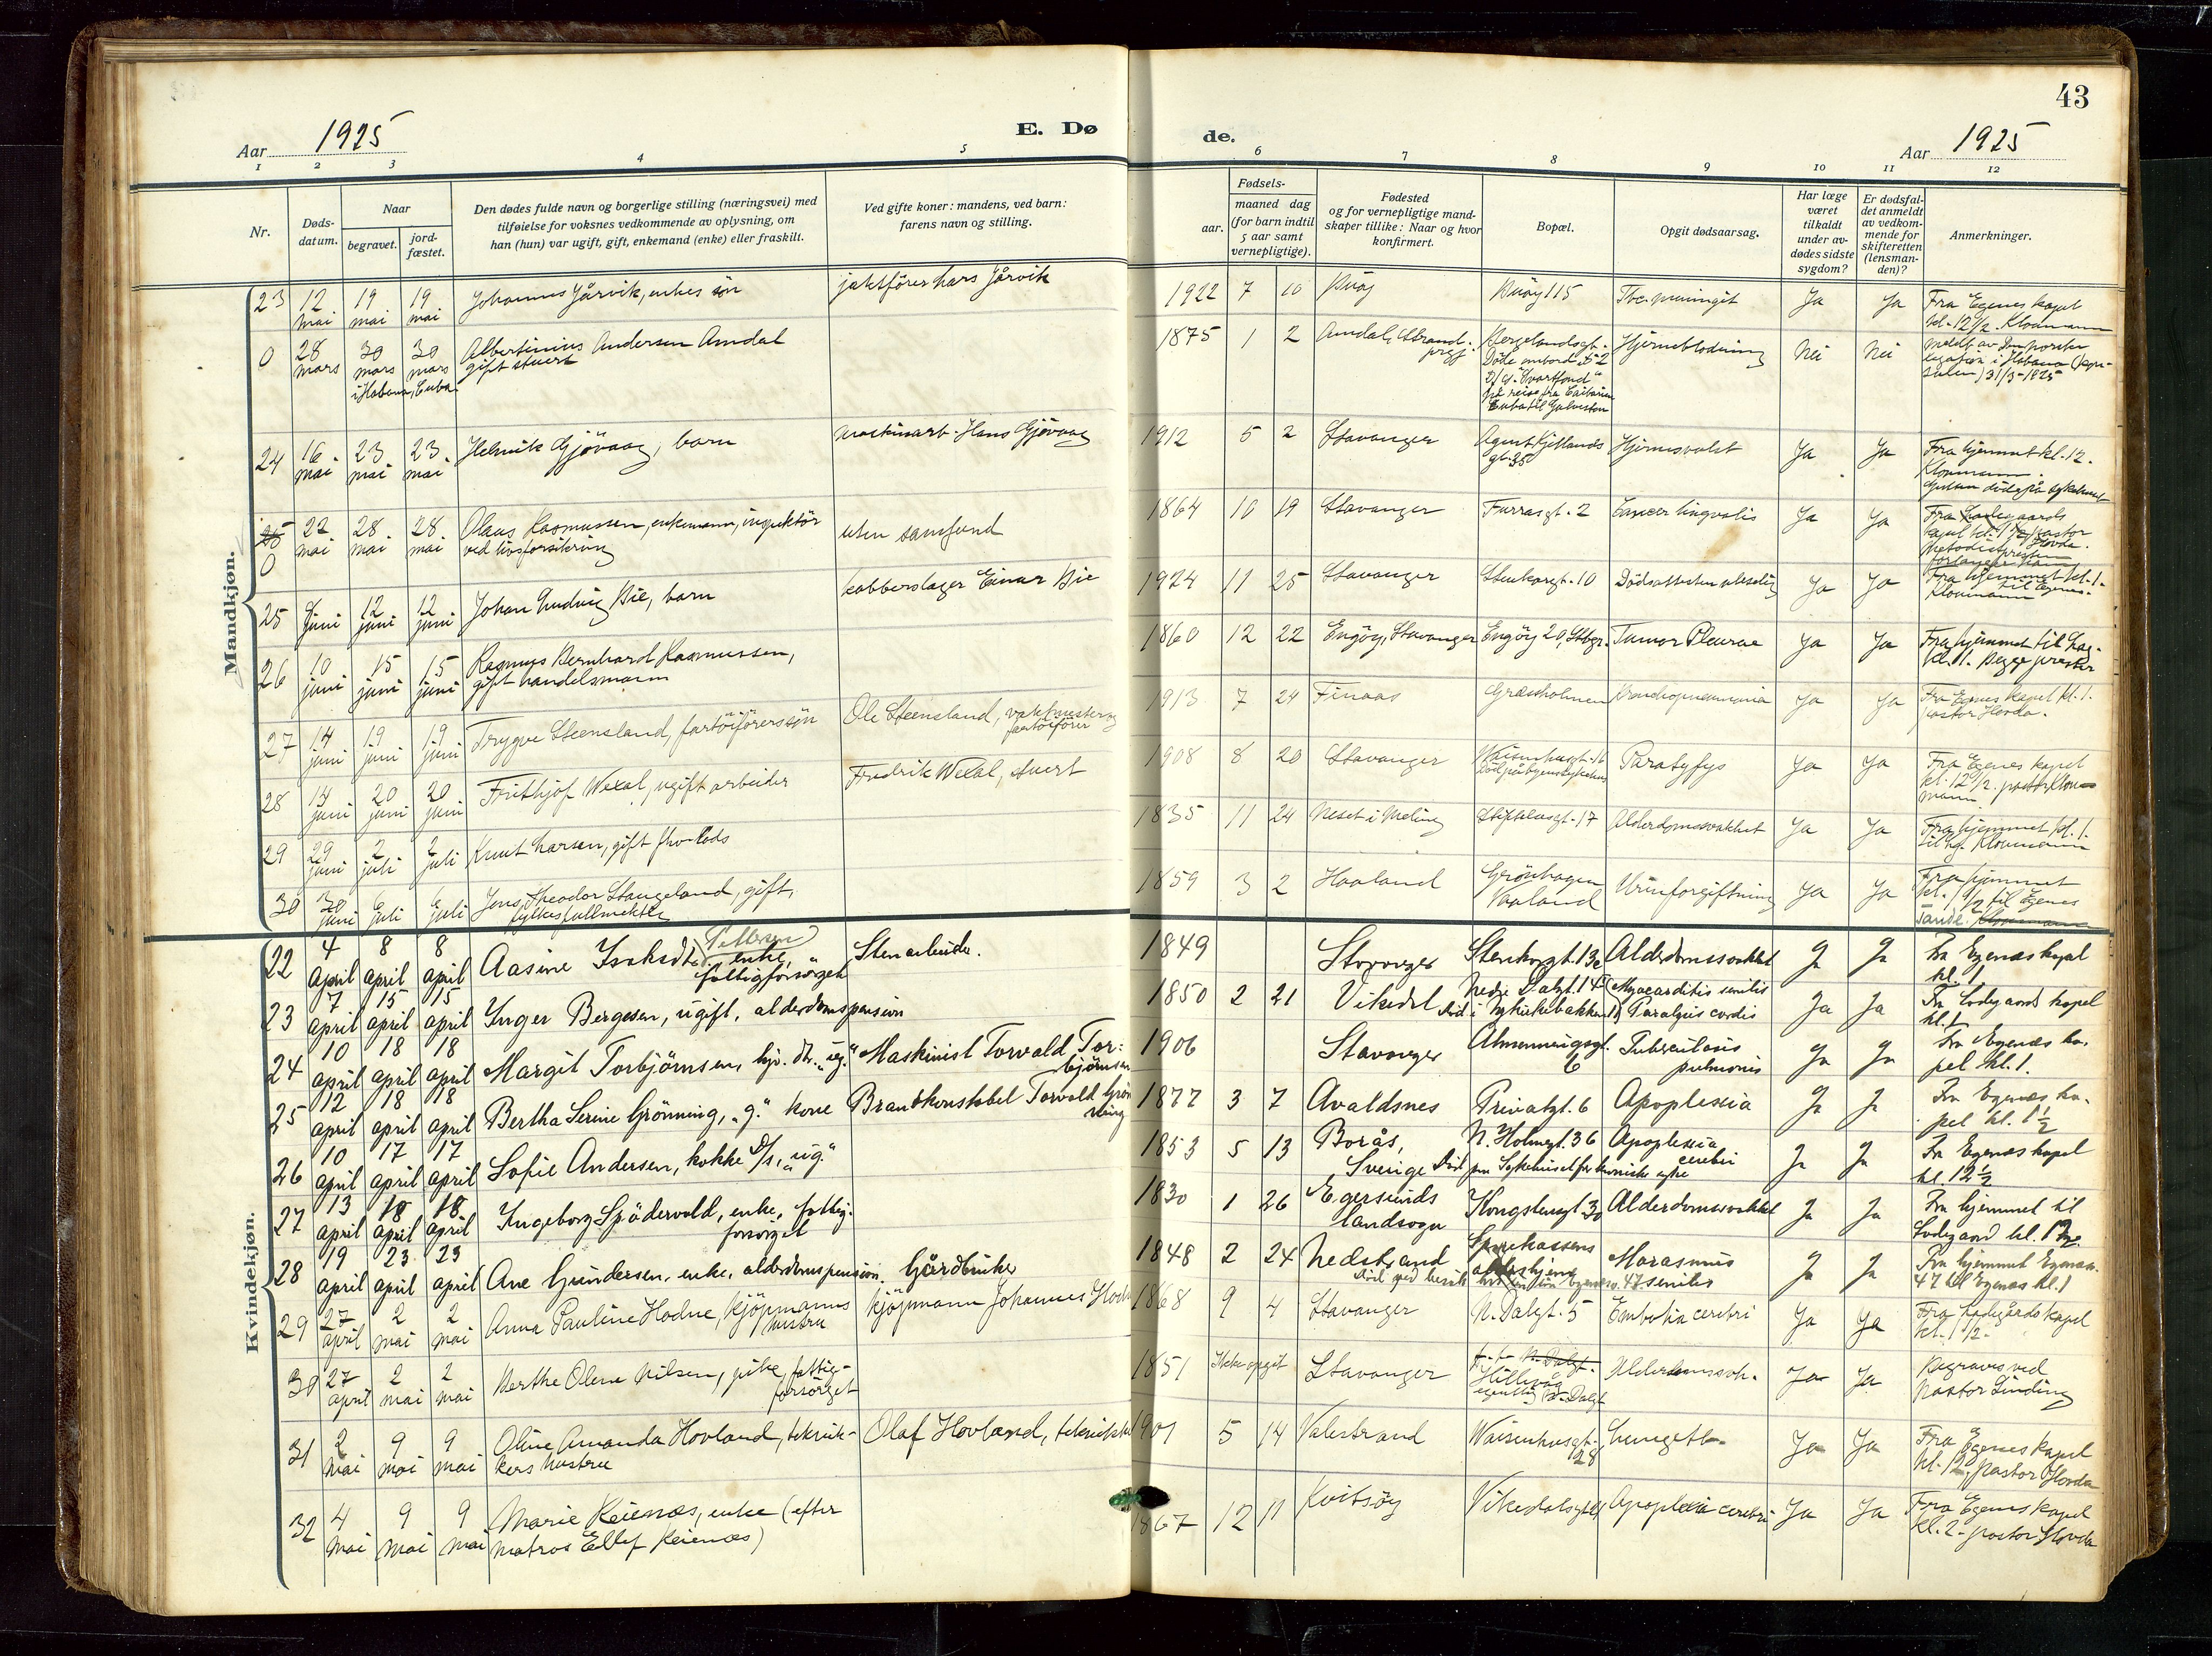 43
Aar 1925
E. Dø
de.
Aar 1925
1 2 3 4 5 6 7 8 9 10 11 12
Nr.
Døds-
datum.
Naar
begravet.
jord-
fæstet.
Den dødes fulde navn og borgerlige stilling (næringsvei) med
tilføielse for voksnes vedkommende av oplysning, om
han (hun) var ugift, gift, enkemand (enke) eller fraskilt.
Ved gifte koner: mandens, ved barn:
farens navn og stilling.
Fødsels-
aar.
maaned dag
(for barn indtil
5 aar samt
vernepligtige).
Fødested
og for vernepligtige mand-
skaper tillike: Naar og hvor
konfirmert.
Bopæl.
Opgit dødsaarsag.
Har læge
været
tilkaldt
under av-
dødes sidste
sygdom?
Er dødsfal-
det anmeldt
av vedkom-
mende for
skifteretten
(lensman-
den)?
Anmerkninger.
Mandkjøn.
23 12 mai 19 mai 19 mai Johannes Jårvik, enkes søn jaktfører Lars Jårvik 1922 7 10 Buøy Buøy 115 Tbc. meningit Ja Ja Fra Egenes kapel
kl. 12 1/2. Kloumann
0 28 mars 30 mars 30 mars Albertinius Andersen Amdal 1875 1 2 Amdal, Strand prgj. Bergelandsgt. Hjerneblødning Nei Nei
gift stuert
i Habana, Cuba
24 16 mai 23 mai 23 mai Helmik Gjøvaag, barn maskinarb. Hans Gjøvaag 1912 5 2 Stavanger gt. 35 Hjernesvulst Ja Ja Fra hjemmet kl. 12.
Kloumann
25 0 22 mai 28 mai 28 mai Olaus Rasmussen, enkemann, inspektør uten samfund 1864 10 19 Stavanger Furrasgt. 2 Cancer lingvalis Ja Ja
ved livsforsikring
25 juni 12 juni 12 juni Johan Ludvig Bie, barn kobberslager Einar Bie 1924 11 25 Stavanger Stenkargt. 10 Ja Ja Fra hjemmet kl. 1.
til Egenes.
Kloumann
26 10 juni 15 juni 15 juni Rasmus Bernhard Rasmussen, 1860 12 22 Engøy, Stavanger Engøy 20, Tumor Pleurae Ja Ja Fra hjemmet til
gift handelsmann
kl. 1. Begge prester
27 14 juni 19 juni 19 juni Trygve Steensland, fartøiførersøn Ole Steensland, vaktmester og 1913 7 24 Finaas Græsholmen Bronchopneumonia Ja Ja Fra Egenes kapel kl. 1.
fartøifører
pastor Hovda.
28 14 juni 20 juni 20 juni Frithjof Wexal, ugift arbeider Fredrik Wexal, stuert 1908 8 20 Stavanger Waisenhusgt. 16 Paratyfys Ja Ja Fra Egenes kapel
kl. 12 1/2. pastor Klou-
mann
29 29 juni 2 juli 2 juli Knut Larsen, gift fhv. lods 1835 11 24 Neset i Meling 17 Alderdomssvakhet Ja Ja Fra hjemmet kl. 1.
Kloumann
30 30 juni 6 juli 6 juli Jens Theodor Stangeland, gift, 1859 3 2 Haaland Grønhagen Urinforgiftning Ja Ja Fra hjemmet
fylkesfullmektig
Vaaland
kl. 1 1/2 til Egenes
Kvindekjøn.
22 4 april 8 april 8 april Aasine Isaksdtr. Pettersen enke, Stenarbeider. 1849 Stavanger Stenkargt. 13 Alderdomssvakhet Ja Ja Fra Egenæs kapel
fattigforsørget
kl. 1
23 7 april 15 april 15 april Inger Bergesen, ugift, alderdomspension 1850 2 21 Vikedal Nedre Dalgt. 14 Myocarditis senilis Ja Ja Fra Lodegaard kapel
Paralysis cordis
kl. 1
24 10 april 18 april 18 april Margit Torbjørnsen, hjv. dtr. "ug." Maskinist Torvald Tor- 1906 Stavanger Almenningsgt. Tuberculosis Ja Ja Fra Egenæs ka-
bjørnsen
6
pulmonis
pel kl. 1.
25 12 april 18 april 18 april Bertha Serine Grønning, "g." kone Brandkonstabel Torvald Grøn-
ning 1877 3 7 Avaldsnes Privatgt. 6 Apoplexia Ja Ja Fra Egenæs ka-
pel kl. 1 1/2
26 10 april 17 april 17 april Sofie Andersen, kokke D/s, "ug." 1853 5 13 Borås, N. Holmegt. 36 Apoplexia Ja Ja Fra Egenæs kapel
Sverige
cerebri
kl. 12 1/2
27 13 april 18 april 18 april Ingeborg Spødervold, enke, fattig- 1830 1 26 Egersunds Kongsteinsgt. 30 Alderdomssvakhet Ja Ja Fra hjemmet til
forsørget
landsogn
Lodegaard kl. 1
28 19 april 23 april 23 april Ane Gundersen, enke, alderdomspension. Gårdbruker 1848 2 24 Nedstrand Sparekassens Marasmus Ja Ja Fra hjemmet Egenæs
senilis
47 til Egenæs kl. 1
29 27 april 2 mai 2 mai Anna Pauline Hodne, kjøpmanns Kjøpmann Johannes Hodne 1868 9 4 Stavanger N. Dalgt. 5 Embolia cerebri Ja Ja Fra Ladegårds kapel
hustru
kl. 1 1/2.
30 27 april 2 mai 2 mai Berthe Olene Nilsen, pike, fattig- 1851 Ikke opgit Stavanger Hillevåg Alderdomssvh. Ja Ja Begraves ved
forsørget
pastor Linding
31 2 mai 9 mai 9 mai Oline Amanda Hovland, teknik- Olaf Hovland, tekniker 1901 5 14 Valestrand Waisenhusgt. 28 Lungetb. Ja Ja Fra Egenes kapel
kers hustru
kl. 12, pastor Hovda
32 4 mai 9 mai 9 mai Marie Reienæs, enke (efter 1867 12 11 Kvitsøy Vikedalsgt. Apoplexia cerebri Ja Ja Fra Egenes kapel
matros Ellef Reienæs)
kl. 2 - pastor Hovda